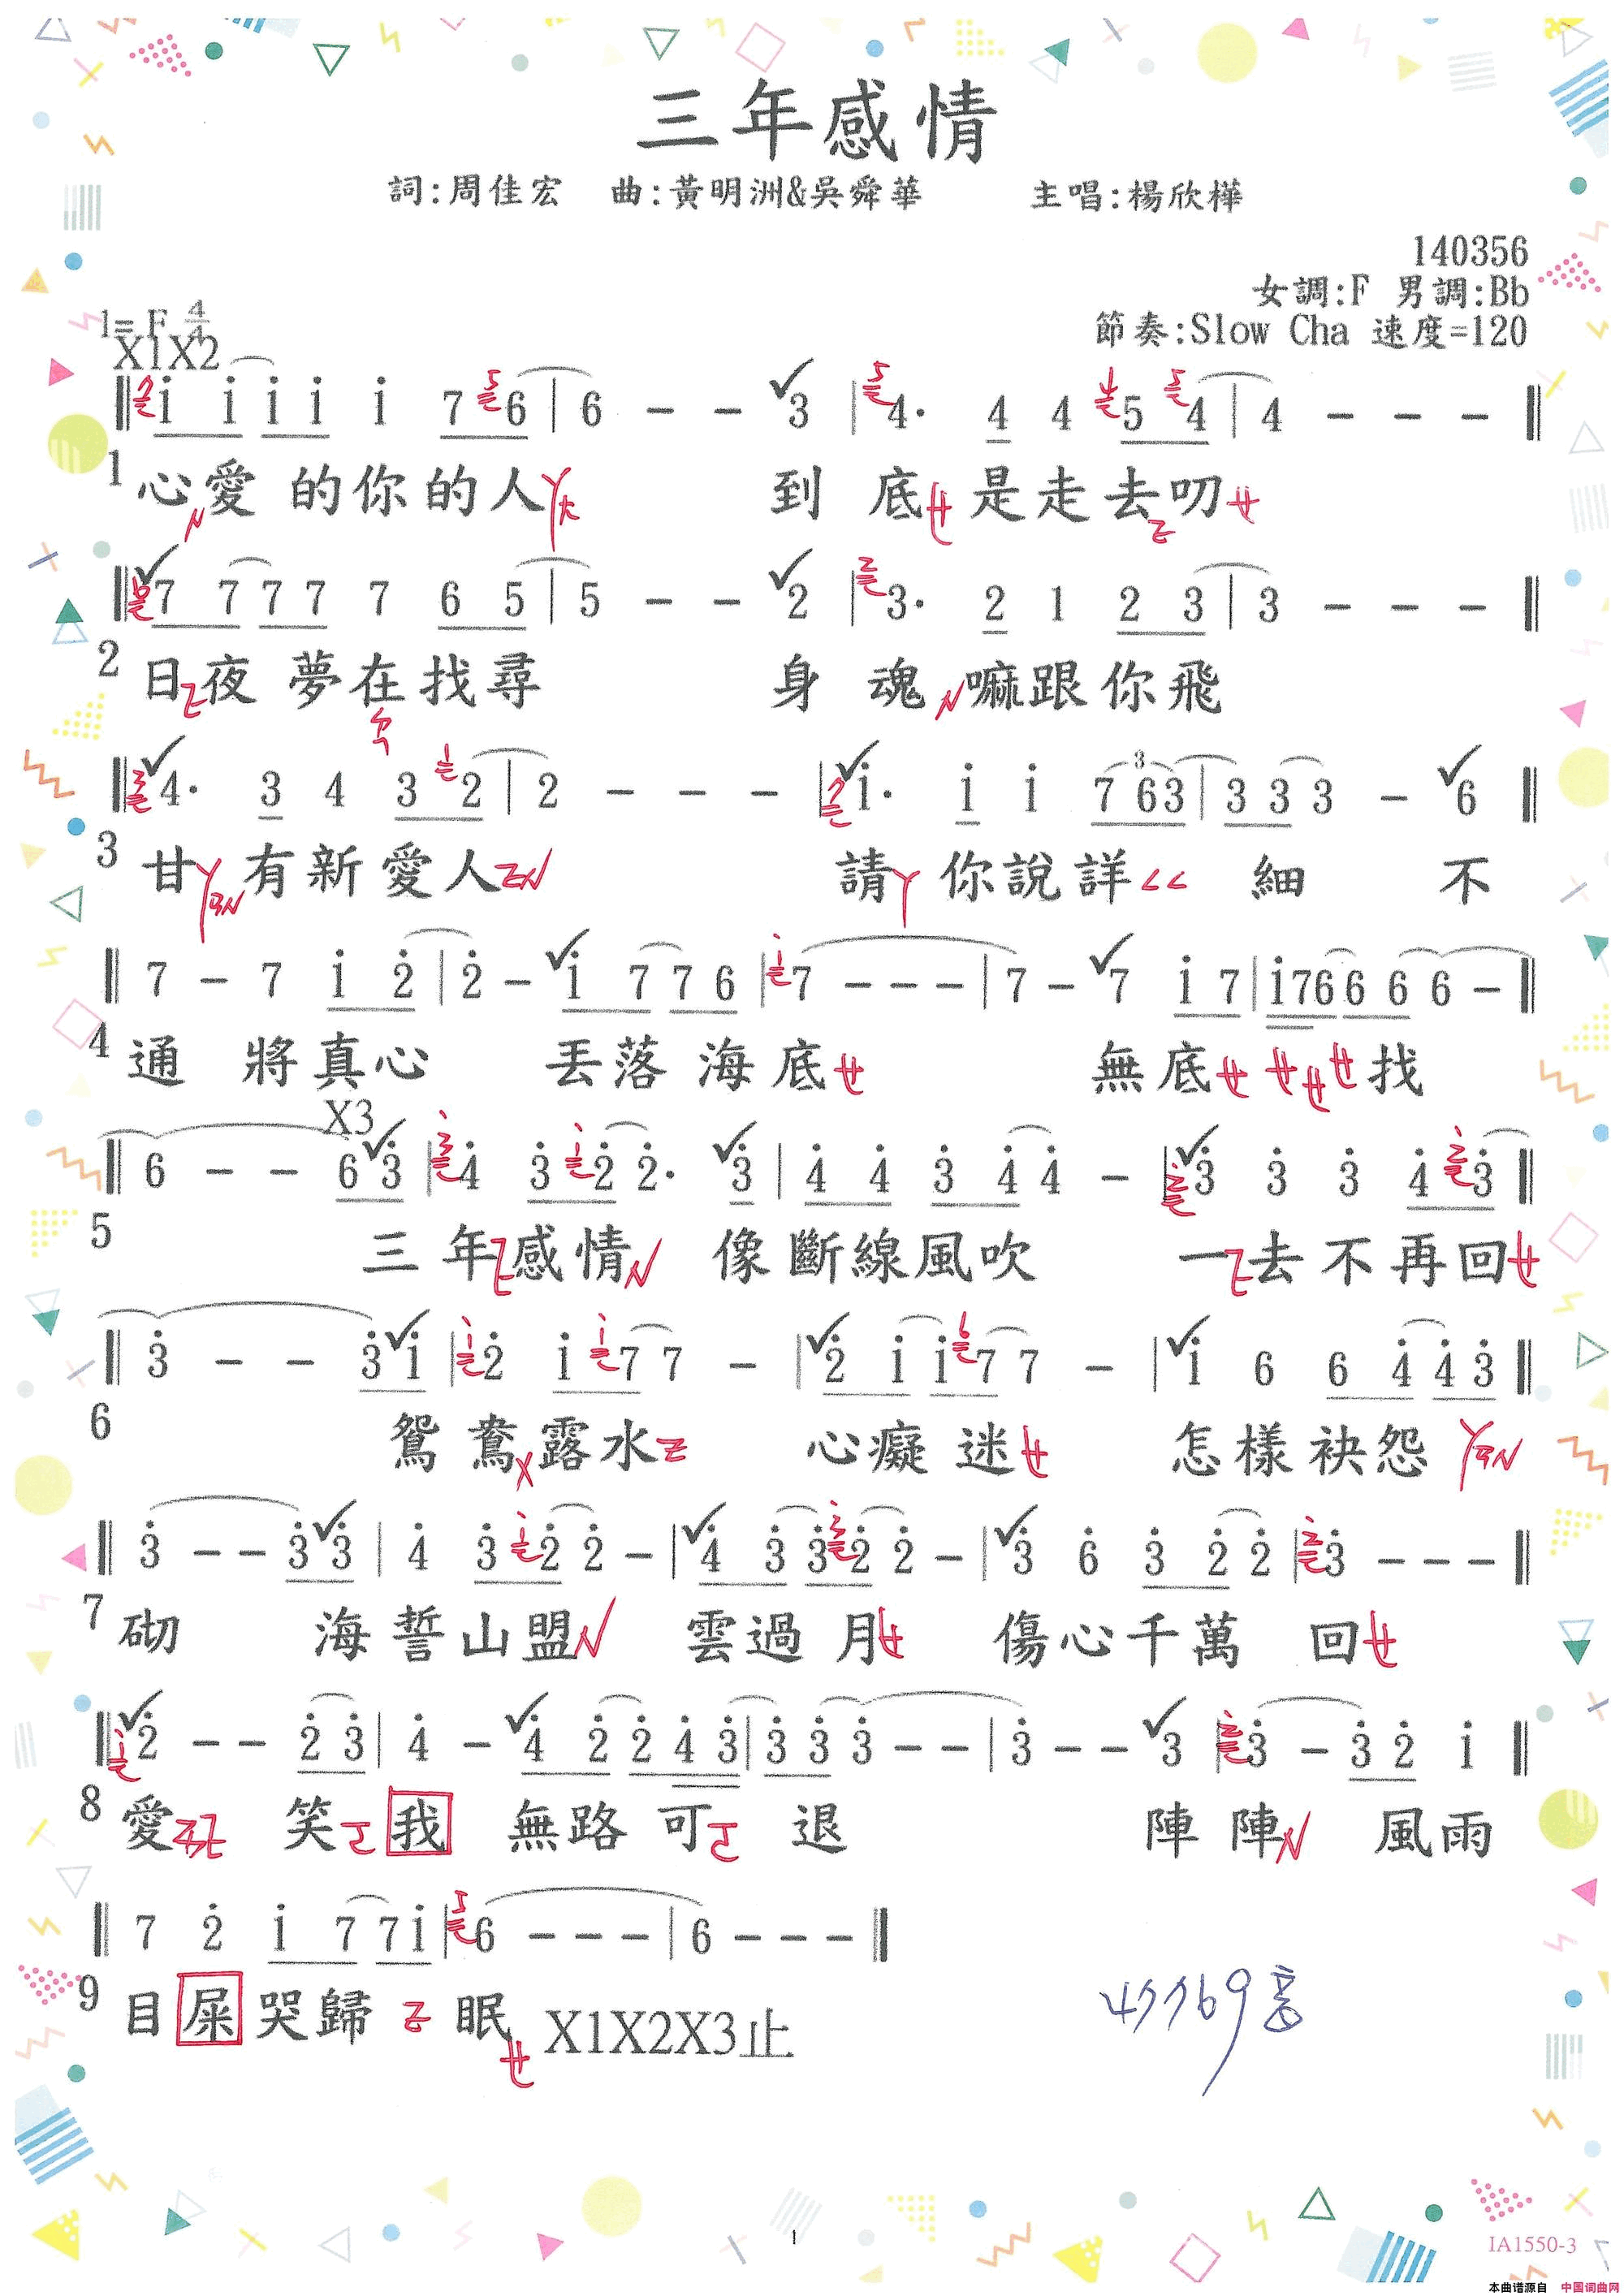 三年感情
詞:周佳宏 曲:黃明洲&吳舜華 主唱:楊欣樺
140356
女調:F 男調:Bb
節奏:Slow Cha 速度=120
1=F 4/4
X1X2
i i i i i 7 6 | 6 - - 3 | 4. 4 4 5 4 | 4 - - -
1 心愛 的你的人 到 底 是走去叨
7 7 7 7 7 6 5 | 5 - - 2 | 3. 2 1 2 3 | 3 - - -
2 日夜 夢在找尋 身 魂 嘛跟你飛
4. 3 4 3 2 | 2 - - - | i. i i 7 6 3 | 3 3 3 - 6
3
3 甘 有新愛人 請 你說詳 細 不
7 - 7 i 2 | 2 - i 7 7 6 | 7 - - - | 7 - 7 i 7 | i 7 6 6 6 6 -
4 通 將真心 丟落 海底 無底 找
X3
6 - - 6 3 | 4 3 2 2. 3 | 4 4 3 4 4 - | 3 3 3 4 3
5 三 年 感情 像斷線風吹 一 去不再回
3 - - 3 i | 2 i 7 7 - | 2 i i 7 7 - | i 6 6 4 4 3
6 鴛鴦 露水 心癡 迷 怎樣袂怨
3 - - 3 3 | 4 3 2 2 - | 4 3 3 2 2 - | 3 6 3 2 2 | 3 - - -
7 砌 海誓山盟 雲過 月 傷心千萬 回
2 - - 2 3 | 4 - 4 2 2 4 3 | 3 3 3 - - | 3 - - 3 | 3 - 3 2 i
8 愛 笑 我 無路 可 退 陣 陣 風雨
7 2 i 7 7 i | 6 - - - | 6 - - -
9 目屎哭歸 眠 X1X2X3止
1
IA1550-3
本曲谱源自 中国词曲网